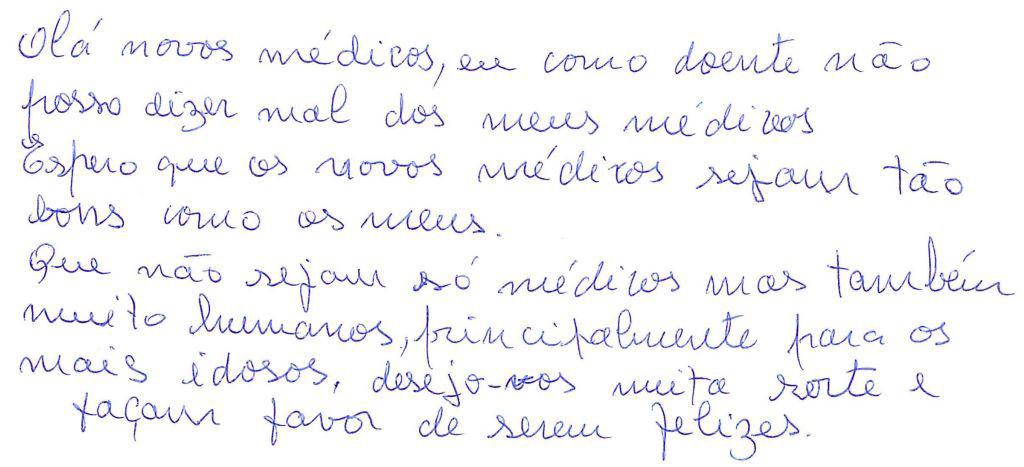 Olá novos médicos, eu como doente não
posso dizer mal dos meus médicos
Espero que os novos médicos sejam tão
bons como os meus.
Que não sejam só médicos mas também
muito humanos, principalmente para os
mais idosos, desejo-vos muita sorte e
façam favor de serem felizes.